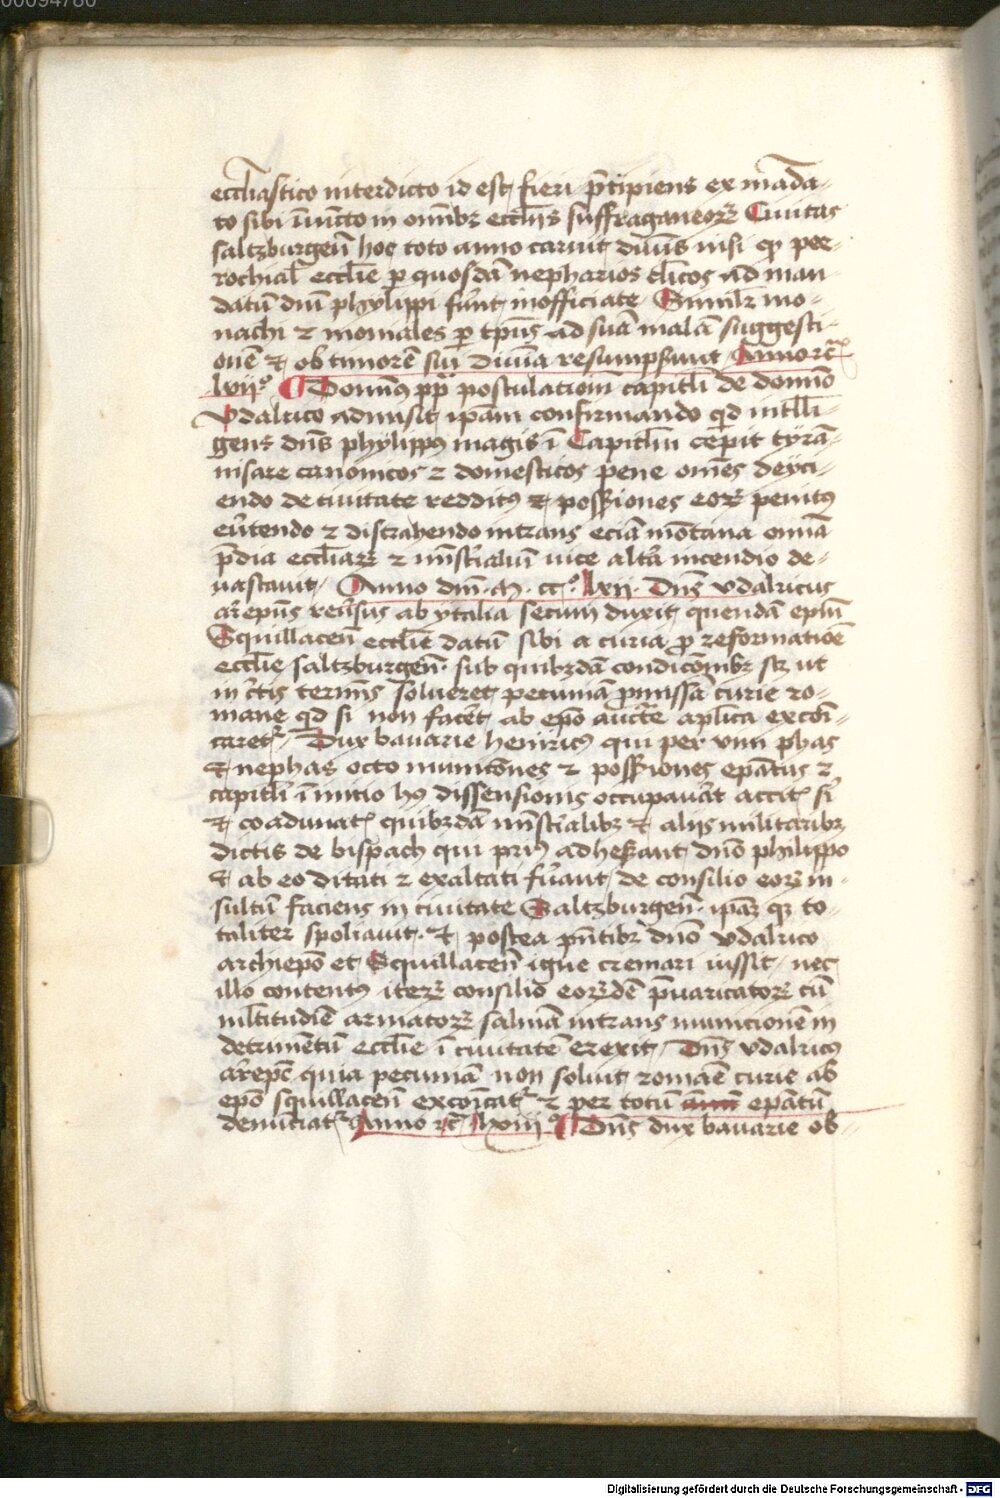 00094780
eccliastico interdicto id est fieri p̄cipiens ex māda⸗
to sibi iniūcto in om̄ibꝫ ecclīis suffraganeoꝝ Ciuitas
saltzburgen̄ hoc toto anno caruit diuīs nisi qꝫ par⸗
rochial' ecclīe ꝑ quosdā nepharios clīcos ad man⸗
datū dnī phylippi fūnt inofficiate Similr̄ mo⸗
nachi ⁊ moniales ꝑ tp̄us ad suā malā suggesti⸗
onē et ob timorē sui diuīa resumpserunt Anno rc̄
lxiiº. Domin9 pp̄ postulacionē capitlī de domīo
vdalrico admisit ip̄am confirmando qd intelli⸗
gens dn̄s phylipp9 magis ī Capitlm̄ cepit tyrā⸗
nisare canonicos ⁊ domesticos pene om̄es deyci⸗
endo de ciuitate reddit9 et possiones eoꝝ penit9
eūtendo ⁊ distrahendo intrans eciā mōtana omīa
p̄dia ecclīaꝝ ⁊ minstialiū vice altā incendio de⸗
uastauit, Anno dnī. M. cc.º lxii. Dn̄s vdalricus
ar̄epūs reūsus ab ytalia secum duxit quendā epm̄
Squillacen̄ ecclīe datū sibi a curia ꝓ reformatiōe
ecclīe saltzburgen̄. sub quibꝫdā condicōnibꝫ sꝫ ut
in c̄tis termīs solueret pecuniā ꝓmissā curie ro⸗
mane qd si non facēt ab epō aucte aplīca excōi⸗
caret᷑, Dux bauarie henric9 qui per vim phas
et nephas octo municōnes ⁊ possiones epāt9 ⁊
capitlī ī initio hō dissensionis occupauāt accit₎ sī
et coadunat₎ quibꝫdā minstialibꝫ et aliis militaribꝫ
dictis de bispach qui pri9 adheseant dn̄o philippo
et ab eo ditati ⁊ exaltati fūant, de consilio eoꝝ in⸗
sultū faciens in ciuitate Saltzburgen̄. ip̄aꝫ qꝫ to⸗
taliter spoliauit. et postea pn̄tibꝫ dn̄o vdalrico
archiepō et Squillacen̄ igne cremari iussit, nec
illo content9 iteꝝ consilio eorꝫdē p̄uaricatoꝝ cū
multitudīe armatoꝝ salinā intrans municionē in
detrimētū ecclīe ī ciuitatē erexit, Dn̄s vdalric9
ar̄epc̄ quia pecuniā non soluit romāe curie ab
epō squillacen̄ excōicat᷑ ⁊ per totū epātū
denūciat᷑ Anno rc̄ lxiiiº Dn̄s dux bauarie ob⸗
Digitalisierung gefördert durch die Deutsche Forschungsgemeinschaft - DFG